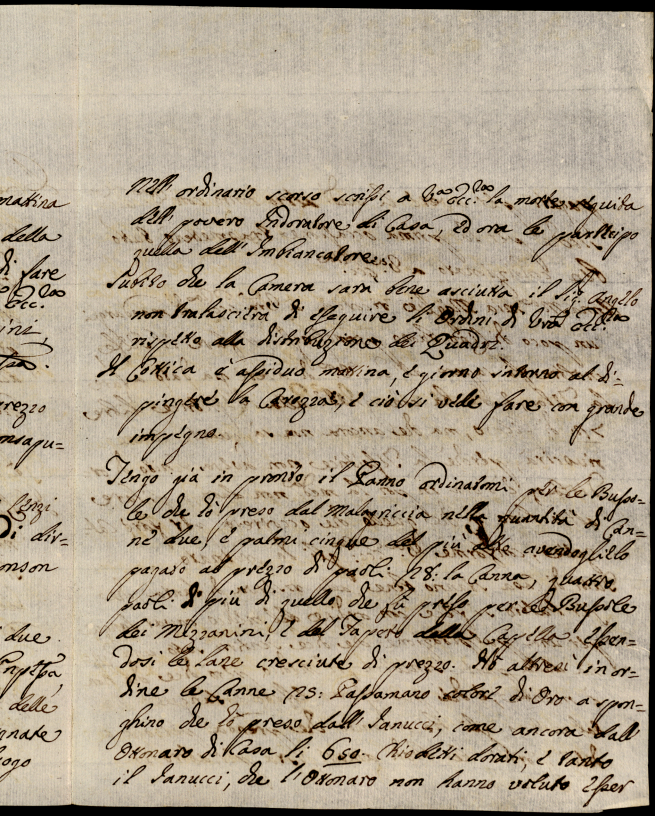 mattina
della
di fare
arezzo
nsapu=
Lenzi
dir=
onson
i due
delle
nnate
ogo
Nell' ordinario scorso scrissi a V.ra Ecc.za la morte seguita
dell' povero Indoratore di Casa, ed ora le partecipo
quella dell' Imbiancatore.
Subito che la Camera sarà bene asciutta il Sig. Angelo
non tralascierà di eseguire li Ordini di V.ra Ecc.za
rispetto alla distribuzione dei Quadri.
Il Corsica è assiduo mattina, e giorno intorno al di=
pingere la Carozza, e ciò si vede fare con grande
impegno.
Tengo già in pronto il Panno ordinatomi per le Busso=
le che hò preso dal Malagriccia nella quantità di Can=
ne due, e palmi cinque del più avendoglielo
pagato al prezzo di paoli 28: la Canna, quattro
paoli di più di quello che fù preso per le Bussole
dei Mezzanini, e del Tapeto della Capella Essen=
dosi le lane cresciute di prezzo. Hò altresi in or=
dine le Canne 25: Passamano colore di Oro a spon=
ghino che hò preso dall' Ianucci, come ancora dall
Ottonaro di Casa li 650. Chiodetti dorati, e tanto
il Ianucci, che l'Ottonaro non hanno voluto Esser